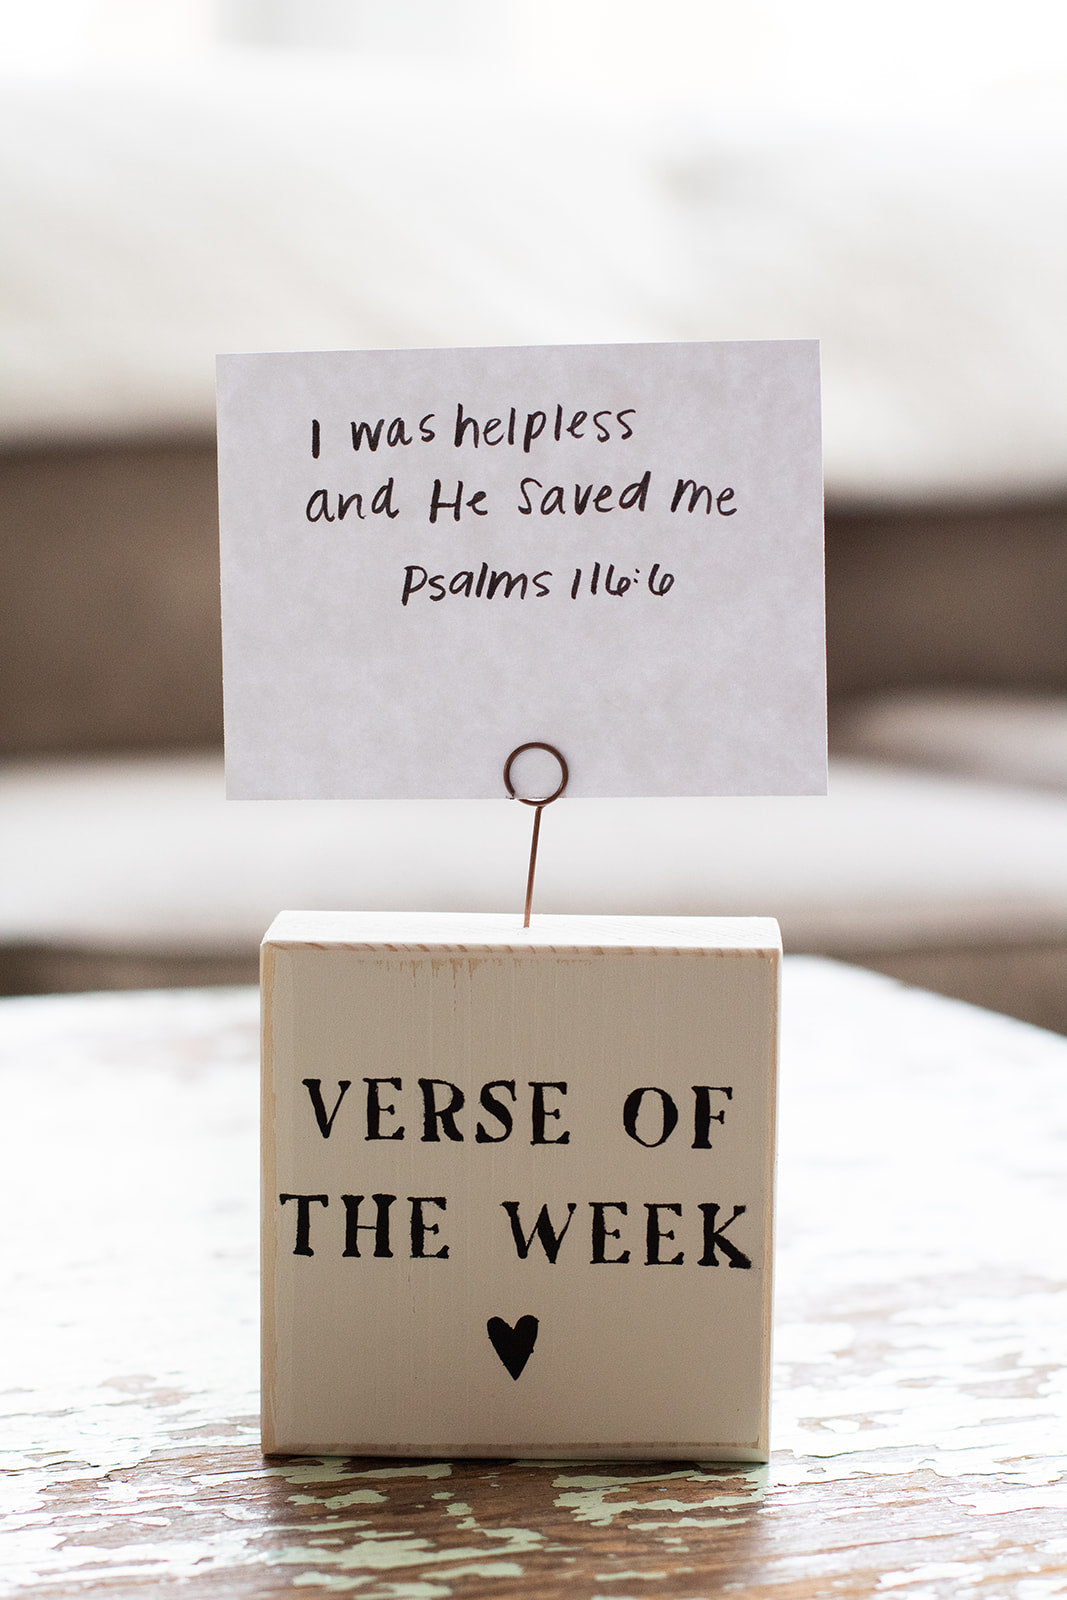 I was helpless
and He saved me
Psalms 116:6
VERSE OF
THE WEEK